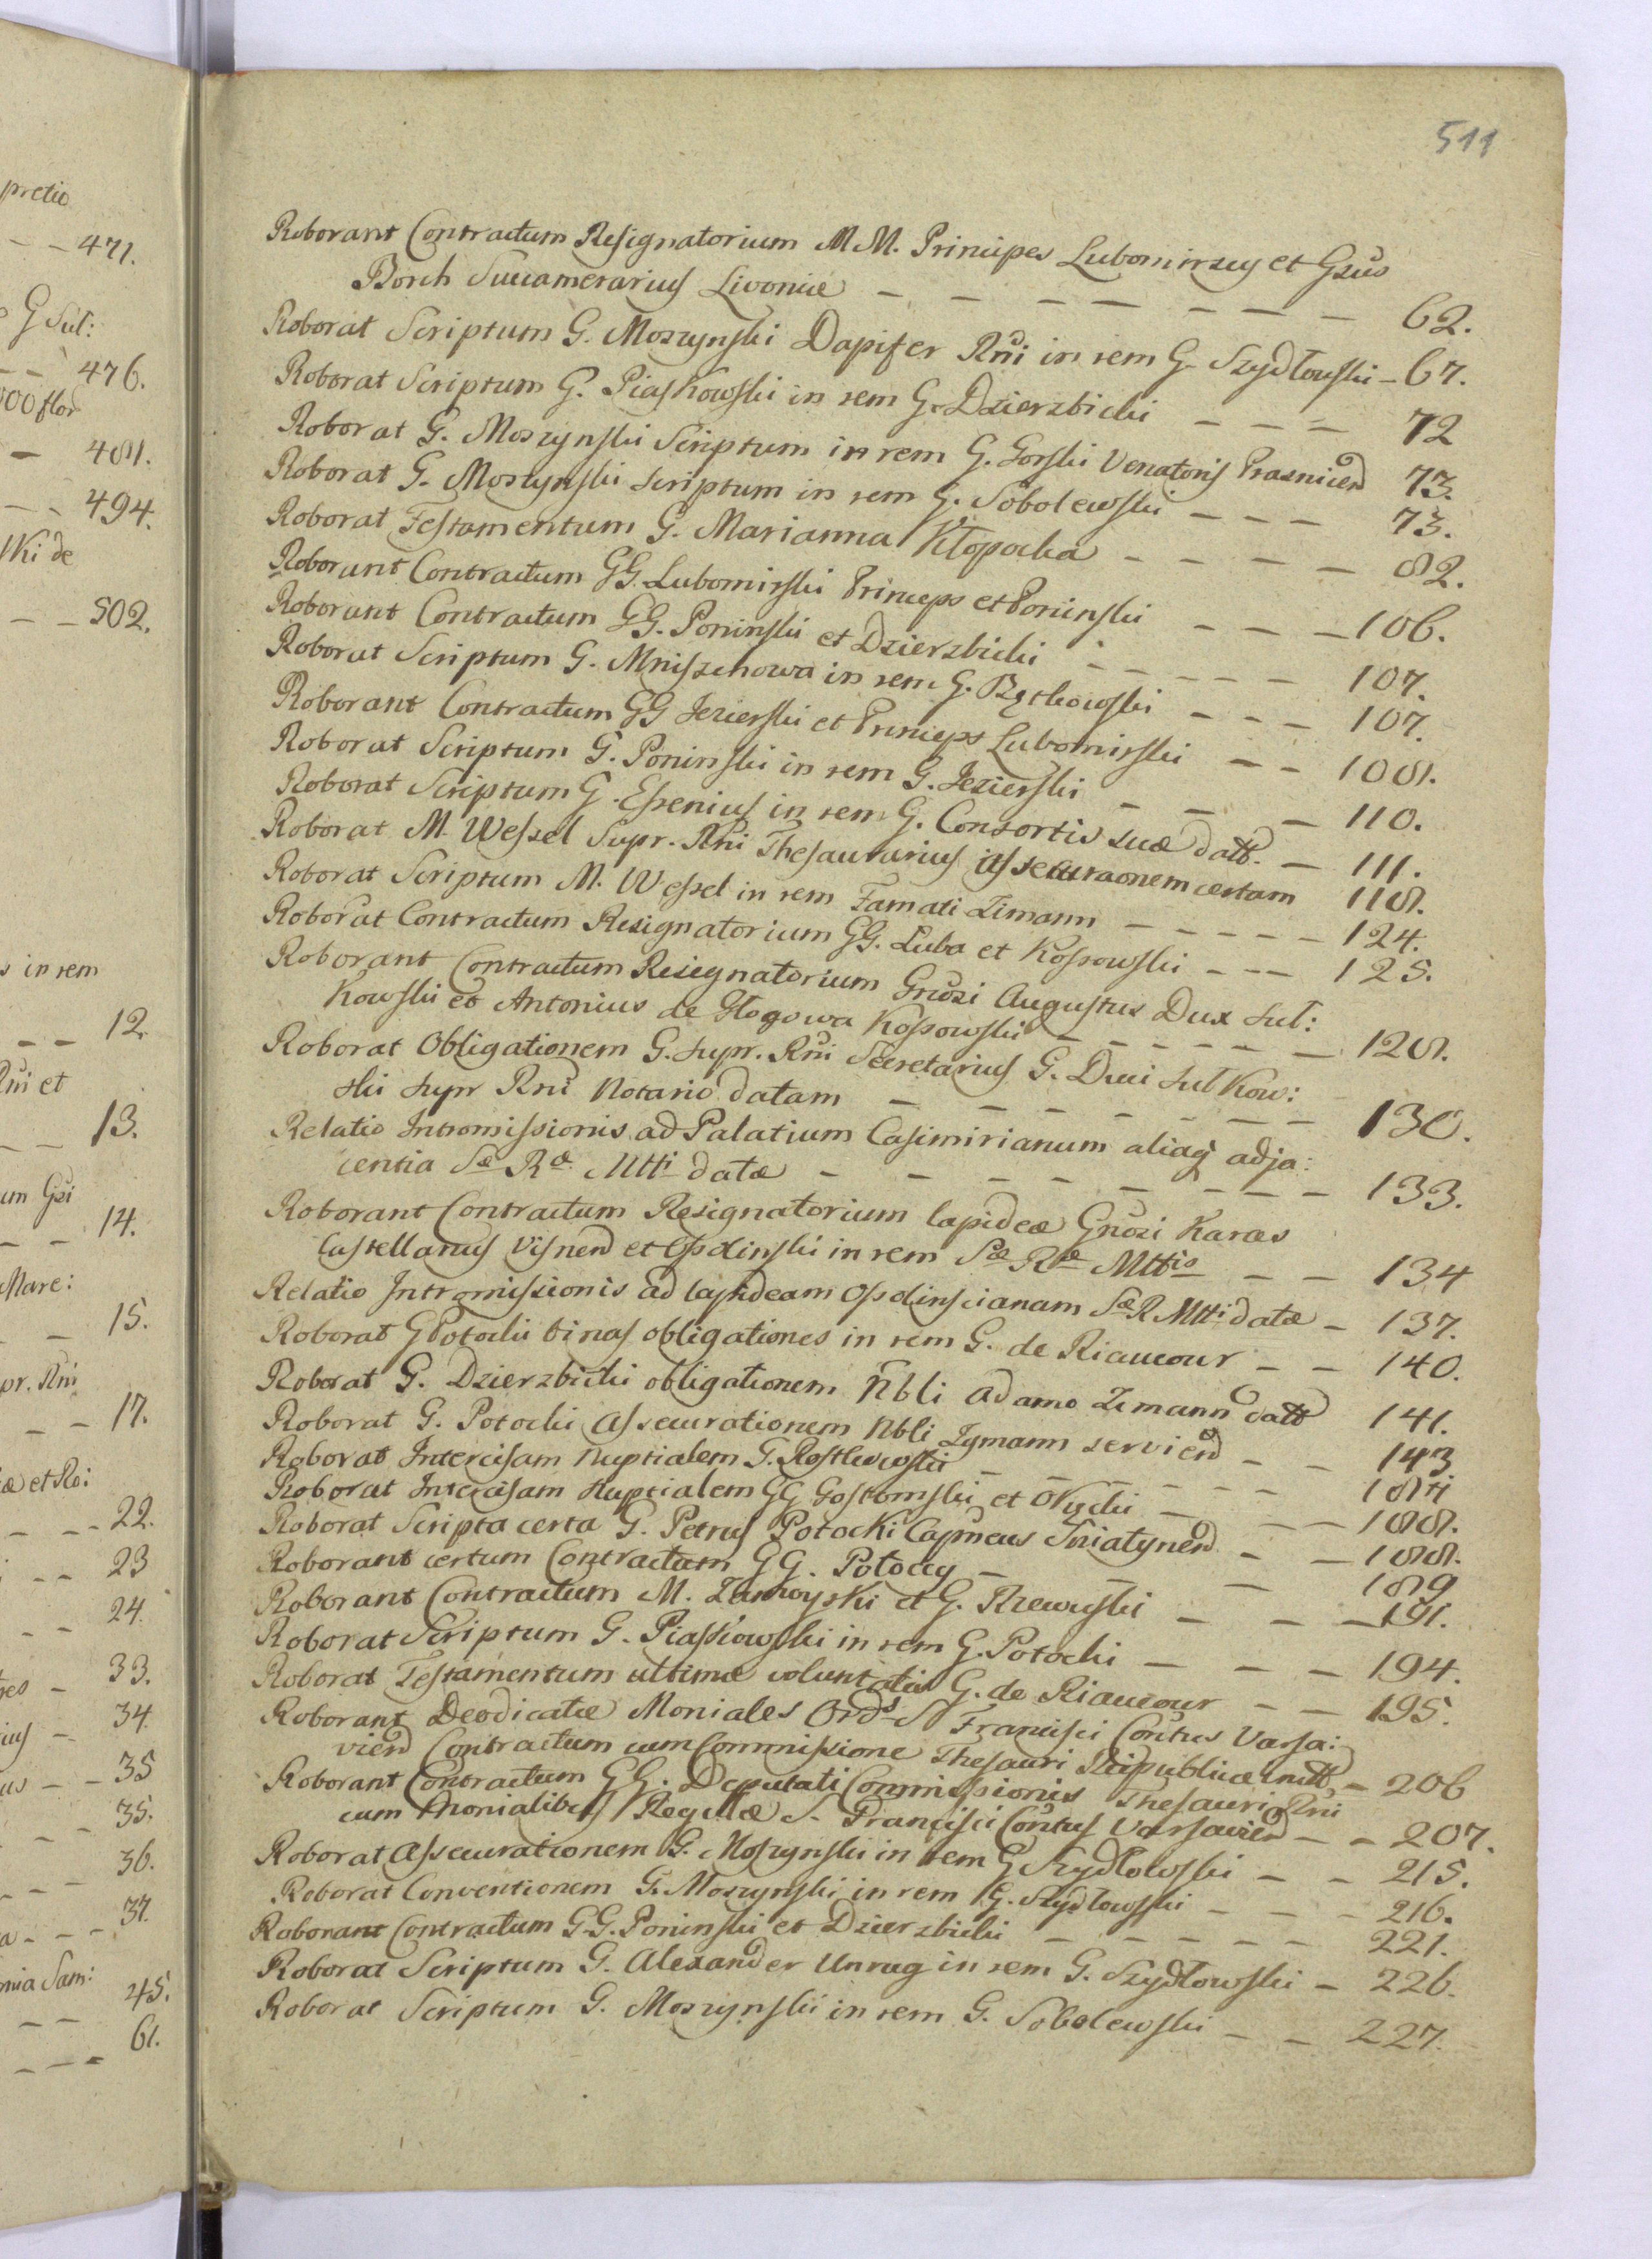 pretio
- - 471.
G Sul:
- - 476.
000 flor
- 481.
- - 494.
lki de
- - 502.
s in rem
- - 12.
Rni et
- - 13.
um Gsi
- - 14.
Mare:
- - 15.
pr. Rni
- - 17.
æ et Ro:
- - - 22.
- - 23
- - 24.
- 33.
ius - 34.
us - - 35
- - 35.
- - - 36.
a - - - 37.
mia Sam:
- - 45.
- - - 61.
511
Roborant Contractum Resignatorium M M. Principes Lubomirscy et Gsus
Borch Succamerarius Livoniæ - - - - - - - - 62.
Roborat Scriptum G. Moszynski Dapifer Rni in rem G. Szydłowski - 67.
Roborat Scriptum G. Piaskowski in rem G. Dzierzbicki - - - 72
Roborat G. Moszynski Scriptum in rem G. Gorski Venatoris Prasnicen 73.
Roborat G. Moszynski scriptum in rem G. Sobolewski - - - 73.
Roborat Testamentum G. Marianna Kłopocka - - - - 82.
Roborant Contractum GG. Lubomirski Princeps et Poninski - - - 106.
Roborant Contractum GG. Poninski et Dzierzbicki - - - - - 107.
Roborat Scriptum G. Mniszchowa in rem G. Bętkowski - - - 107.
Roborant Contractum GG Jezierski et Princeps Lubomirski - - 108.
Roborat Scriptum G. Poninski in rem G. Jezierski - - - 110.
Roborat Scriptum G. Essenius in rem G. Consortis suæ datt. - 111.
Roborat M. Wessel Supr. Rni Thesaurarius assecuraonem certam 118.
Roborat Scriptum M. Wessel in rem Famati Zimann - - - - - 124.
Roborat Contractum Resignatorium GG. Luba et Kossowski - - - 125.
Roborant Contractum Resignatorium Gnosi Augustus Dux Sul:
kowski et Antonius de Głogowa Kossowski - - - - - - 128.
Roborat Obligationem G. Supr. Rni Secretarius G. Duci Sulkow:
ski Supr Rni Notario datam - - - - - - - - 130.
Relatio Intromissionis ad Palatium Casimirianum aliaq adja:
centia Sæ Ræ Mtti datæ - - - - - - - - 133.
Roborant Contractum Resignatorium lapideæ Gnosi Karas
Castellanus Visnen et Ossolinski in rem Sæ Ræ Mttis - - 134
Relatio Intromissionis ad lapideam Ossolinscianam Sæ R Mtti datæ - 137.
Roborat G Potocki binas obligationes in rem G. de Riaucour - - 140.
Roborat G. Dzierzbicki obligationem Nbli Adamo Zimann datt 141.
Roborat G. Potocki Assecurationem Nbli Zymann servien - - 143
Roborat Intercisam Nuptialem G. Rostkowski - - - - - - 184
Roborat Intercisam Nuptialem GG Gostomski et Okęcki - - - 188.
Roborat Scripta certa G. Petrus Potocki Capneus Sniatynen - - 188.
Roborant certum Contractum GG. Potoccy - - - - 189
Roborant Contractum M. Zamoyski et G. Rzewuski - - - 191.
Roborat Scriptum G. Piaskowski in rem G. Potocki - - - 194.
Roborat Testamentum ultimæ voluntatis G. de Riaucour - - 195.
Roborant Deodicatæ Moniales Ords S Francisci Contus Varsa:
vien Contractum cum Commissione Thesauri Reipublicæ init. - 206
Roborant Contractum GG. Deputati Commissionis Thesauri Rni
cum Monialibus Regulæ S. Francisci Contus Varsavien - - 207.
Roborat Assecurationem G. Moszynski in rem G Szydłowski - - 215.
Roborat Conventionem G. Moszynski in rem G. Szydłowski - - - 216.
Roborant Contractum G.G. Poninski et Dzierzbicki - - - - - 221.
Roborat Scriptum G. Alexander Unrug in rem G. Szydłowski - 226.
Roborat Scriptum G. Moszynski in rem G. Sobolewski - - 227.